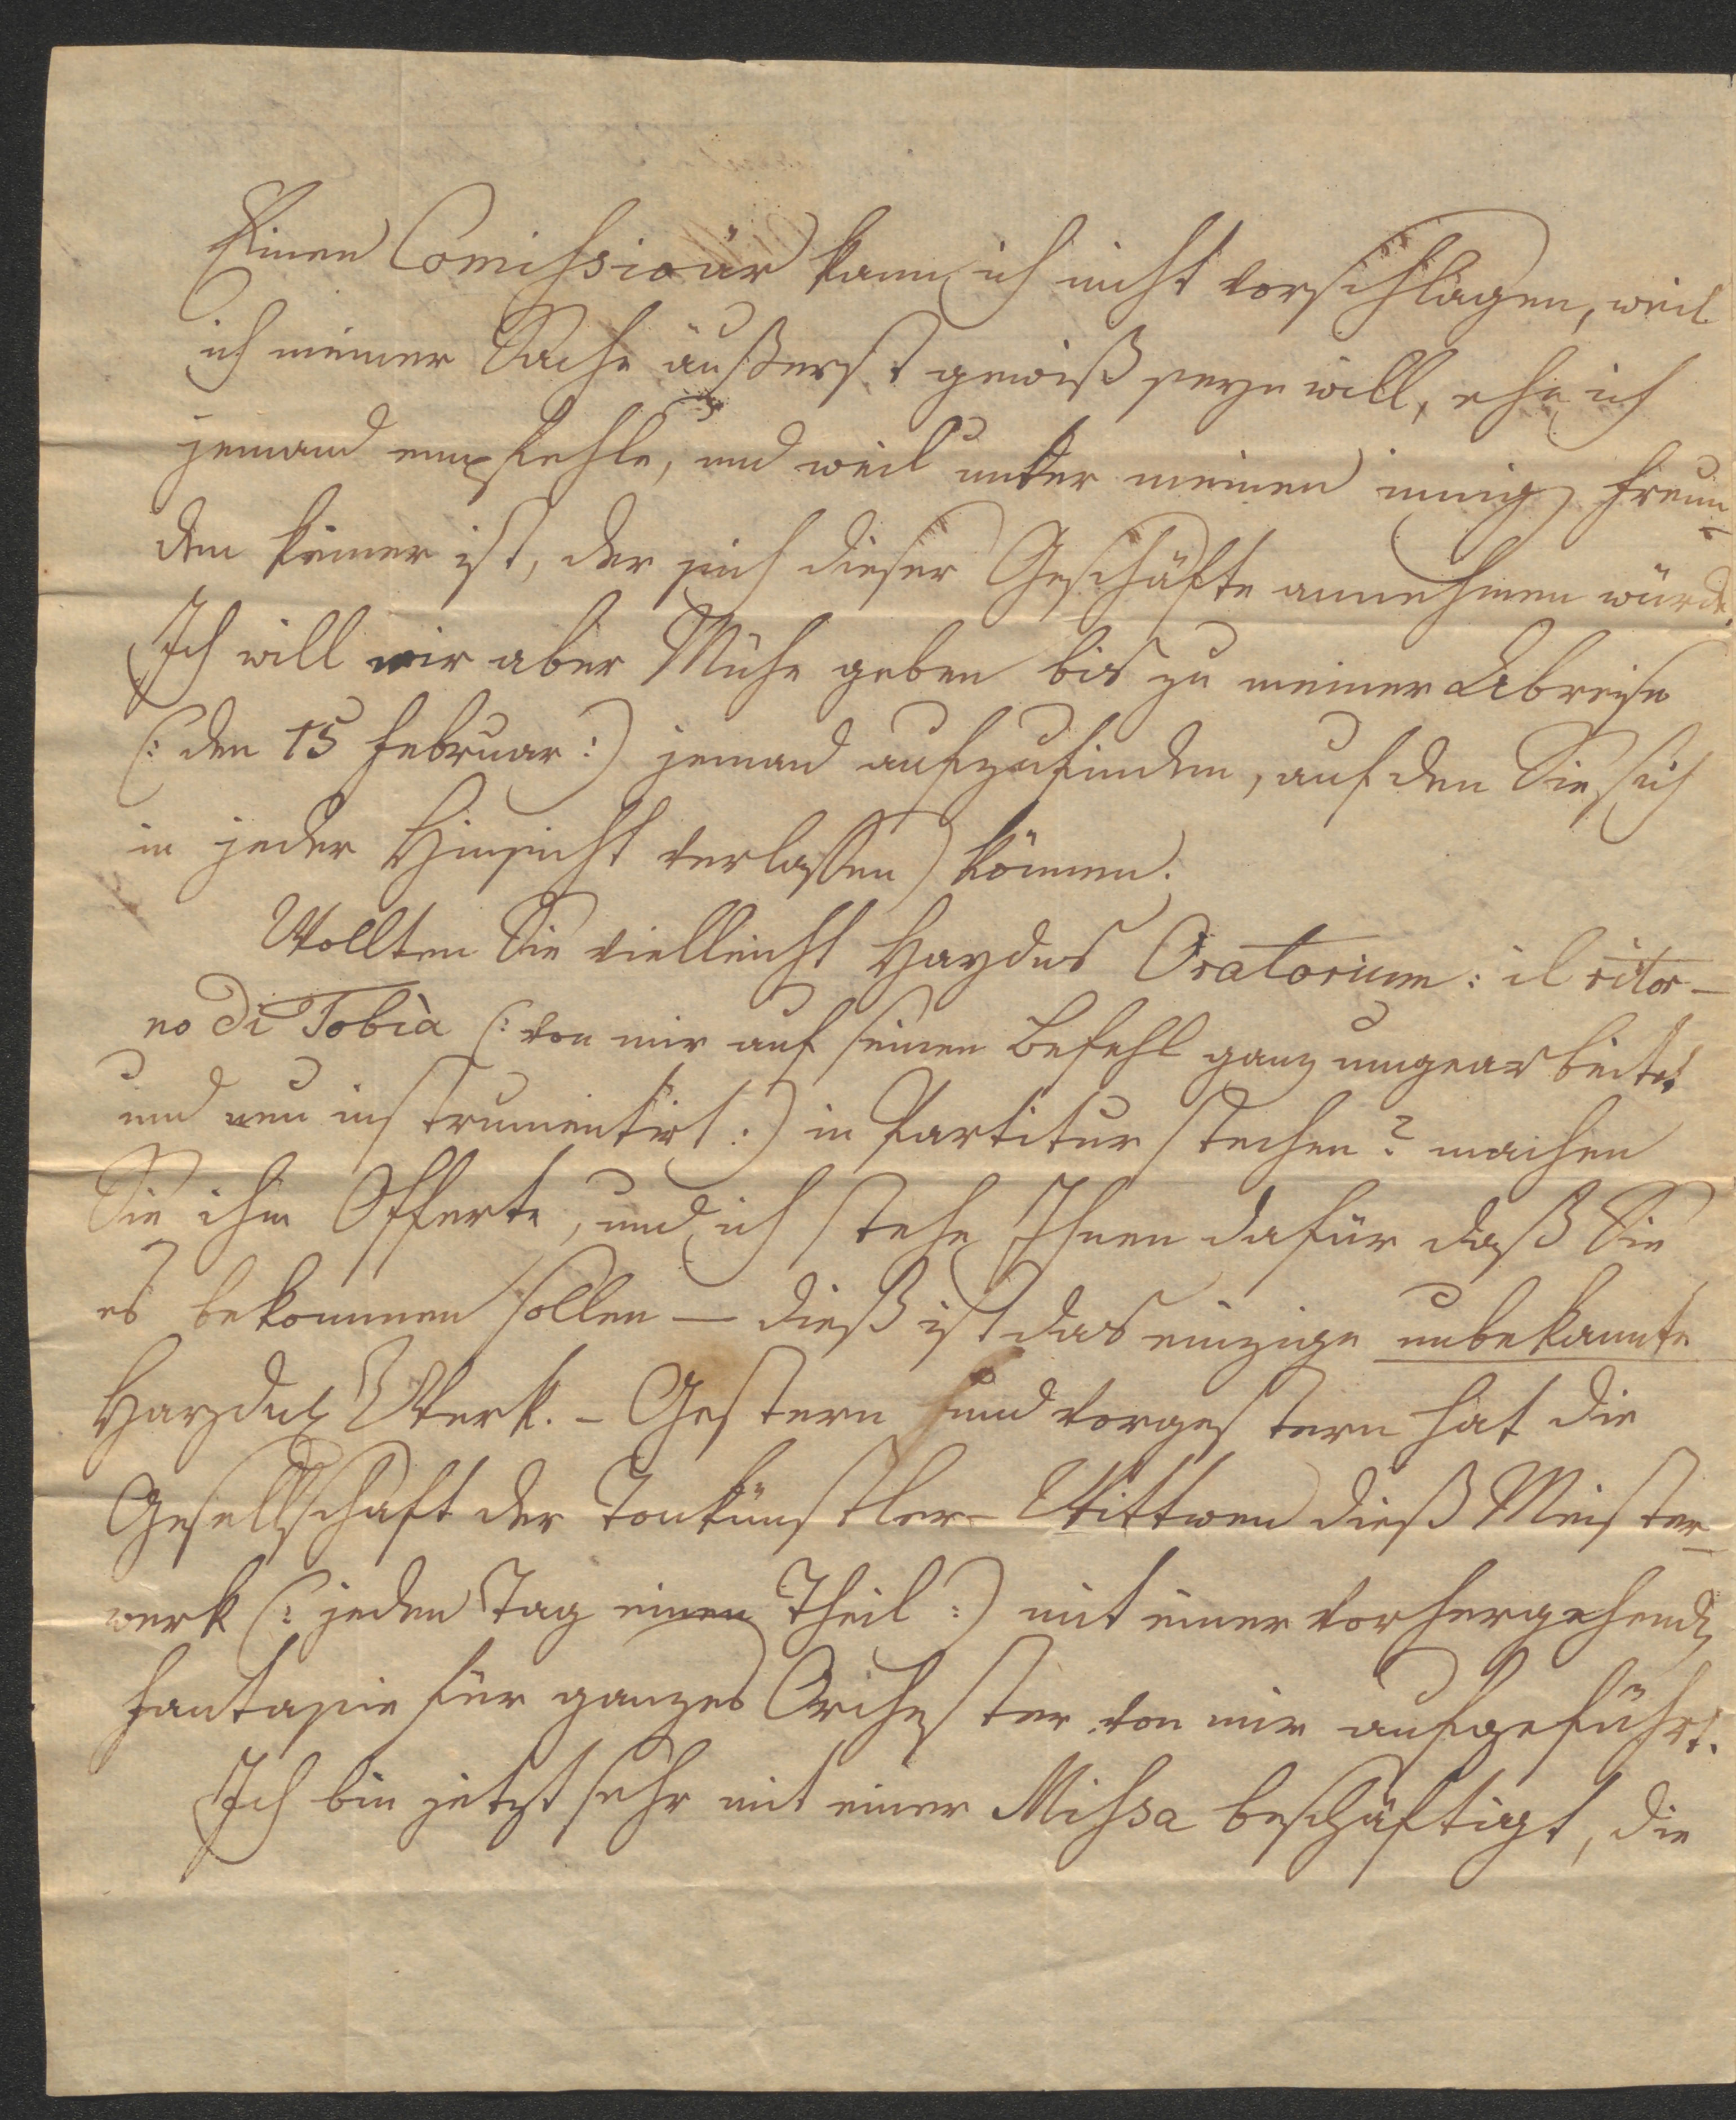 Einen Comißionär kann ich nicht vorschlagen, weil
ich meiner Sache äußerst gewiß seyn will, ehe ich
jemand empfehle, und weil unter meinen innig Freun-
den keiner ist, der sich dieser Geschäfte annehmen würde.
Ich will mir aber Mühe geben bis zu meiner Abreise
(: den 15 Februar :) jemand aufzufinden, auf den Sie sich
in jeder Hinsicht verlassen können.
Wollten Sie vielleicht Haydns Oratorium: il ritor-
no di Tobia (: von mir auf seinen Befehl ganz umgearbeitet
und neu instrumentirt :) in Partitur stechen? machen
Sie ihm Offerte, und ich stehe Ihnen dafür daß Sie
es bekommen sollen — dieß ist das einzige unbekannte
Haydn Werk. – Gestern und vorgestern hat die
Gesellschaft der Tonkünstler-Wittwen dieß Meister-
werk (: jeden Tag einen Theil :) mit einer vorhergehend
Fantasie für ganzes Orchester von mir aufgeführt.
Ich bin jetzt sehr mit einer Mißa beschäftigt, die